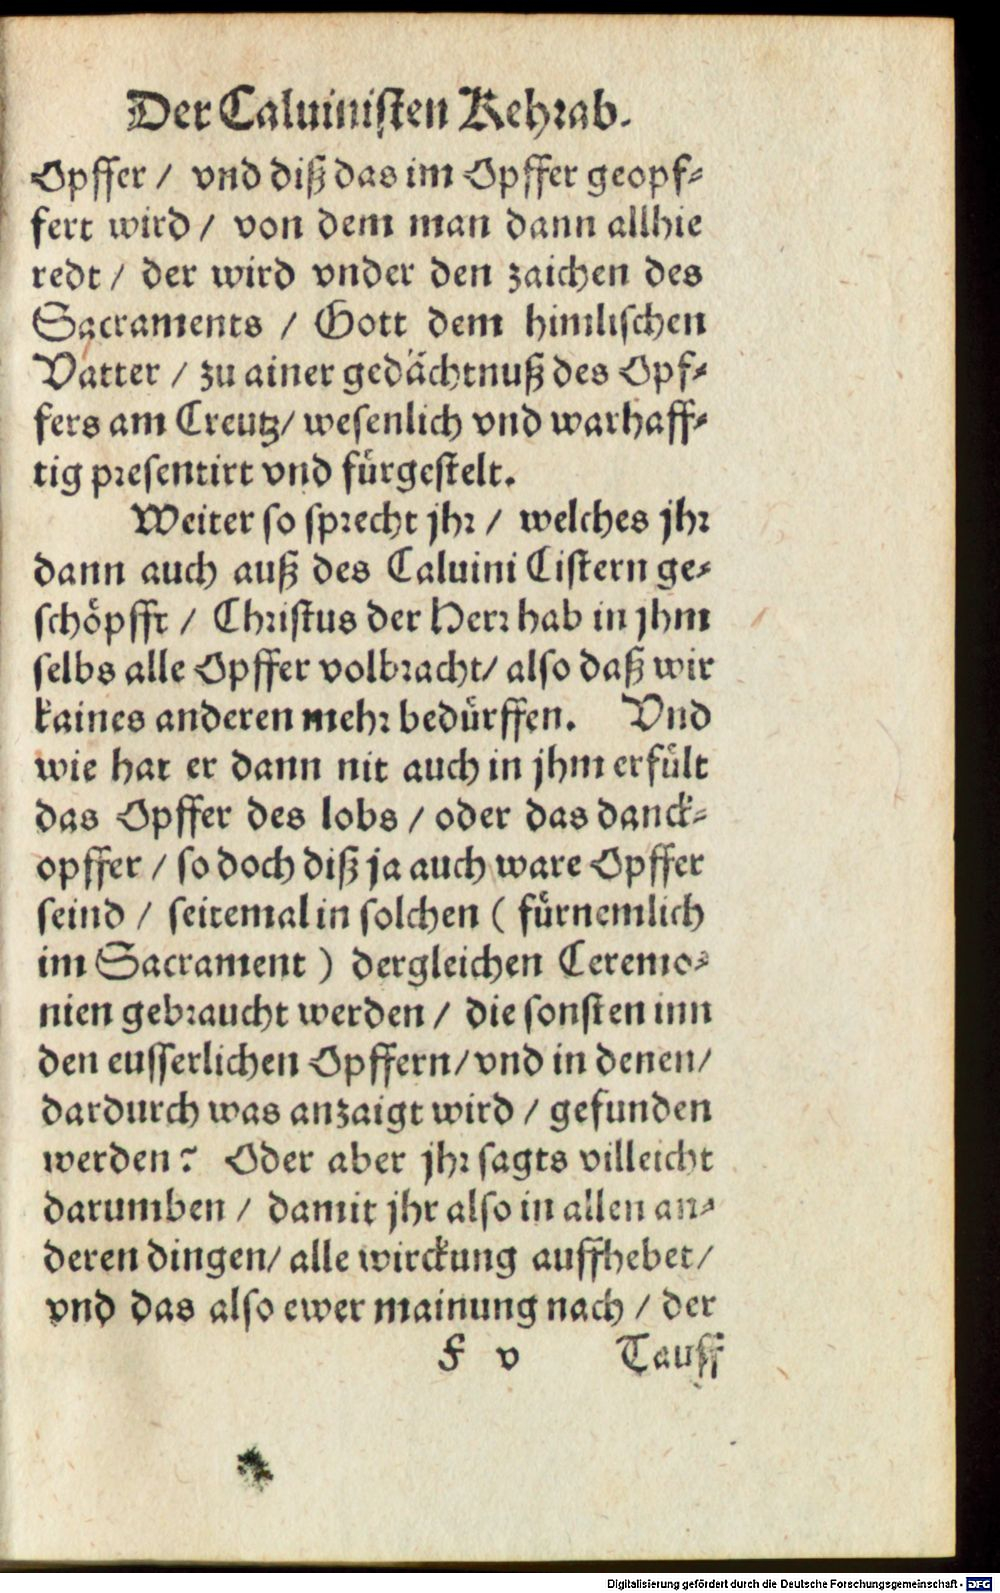 Der Caluinisten Kehrab.
Opffer / vnd diß das im Opffer geopf-
fert wird / von dem man dann allhie
redt / der wird vnder den zaichen des
Sacraments / Gott dem himlischen
Vatter / zu ainer gedächtnuß des Opf-
fers am Creutz/ wesenlich vnd warhaff-
tig presentirt vnd fürgestelt.
Weiter so sprecht jhr / welches jhr
dann auch auß des Caluini Cistern ge-
schöpfft / Christus der Herr hab in jhm
selbs alle Opffer volbracht/ also daß wir
kaines anderen mehr bedürffen. Vnd
wie hat er dann nit auch in jhm erfült
das Opffer des lobs / oder das danck-
opffer / so doch diß ja auch ware Opffer
seind / seitemal in solchen ( fürnemlich
im Sacrament ) dergleichen Ceremo-
nien gebraucht werden / die sonsten inn
den eusserlichen Opffern/ vnd in denen/
dardurch was anzaigt wird / gefunden
werden? Oder aber jhr sagts villeicht
darumben / damit jhr also in allen an-
deren dingen/ alle wirckung auffhebet/
vnd das also ewer mainung nach / der
F v Tauff
Digitalisierung gefördert durch die Deutsche Forschungsgemeinschaft - DFG